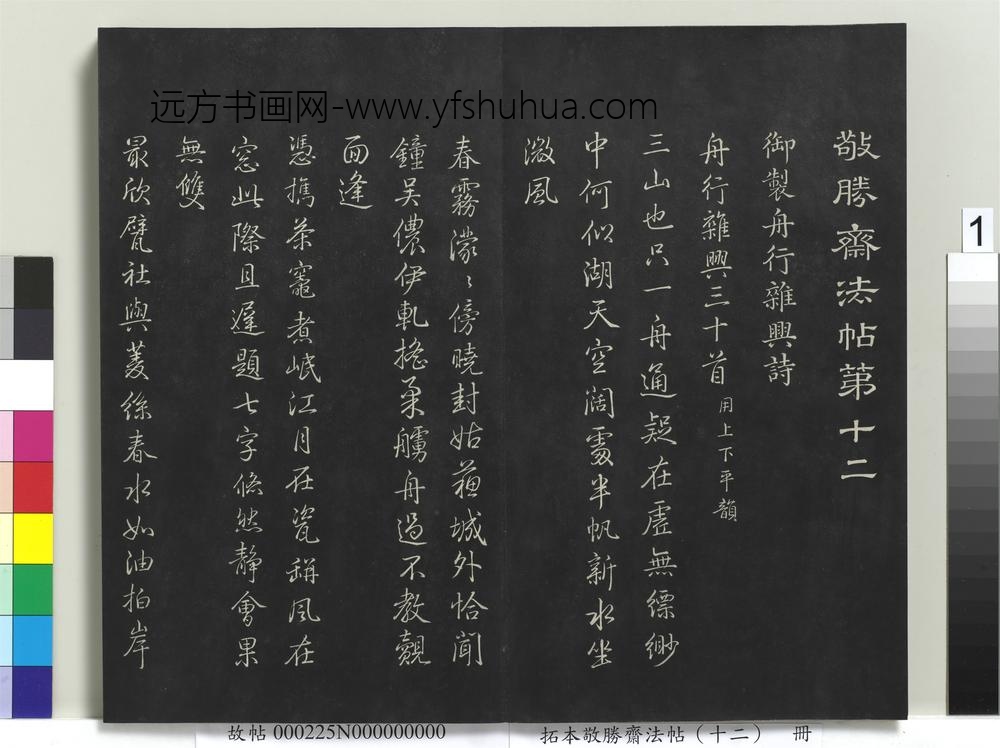 远方书画网-www.yfshuhua.com
敬勝齋法帖第十二
御製舟行雜興詩
舟行雜興三十首用上下平韻
三山也只一舟通疑在虛無縹緲
中何似湖天空闊處半帆新水坐
微風
春霧濛〻傍曉封姑蘇城外恰聞
鐘吳儂伊軋搖柔艣舟過不教覿
面逢
憑攜茶竈煮岷江月在瓷稱風在
窓此際且遲題七字翛然靜會果
無雙
最欣甓社與菱絲春水如油拍岸
1
故帖 000225N000000000
拓本敬勝齋法帖（十二） 冊